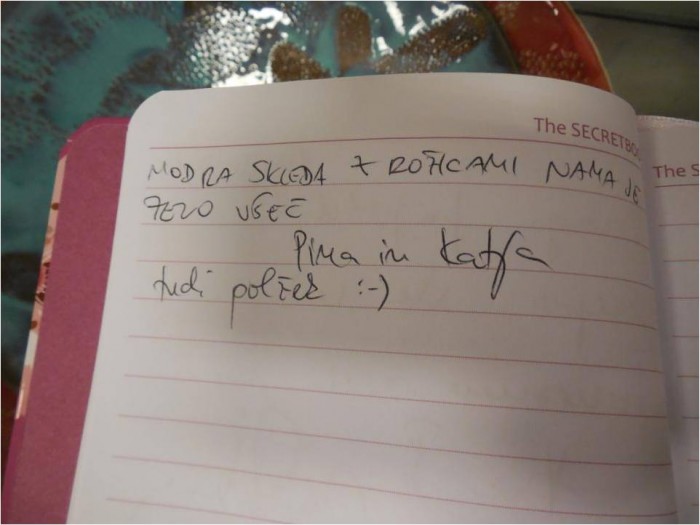 The SECRETBO
The S
MODRA SKLEDA Z ROŽICAMI NAMA JE
ZELO VŠEČ
Pika in Katja
tudi polžek :-)